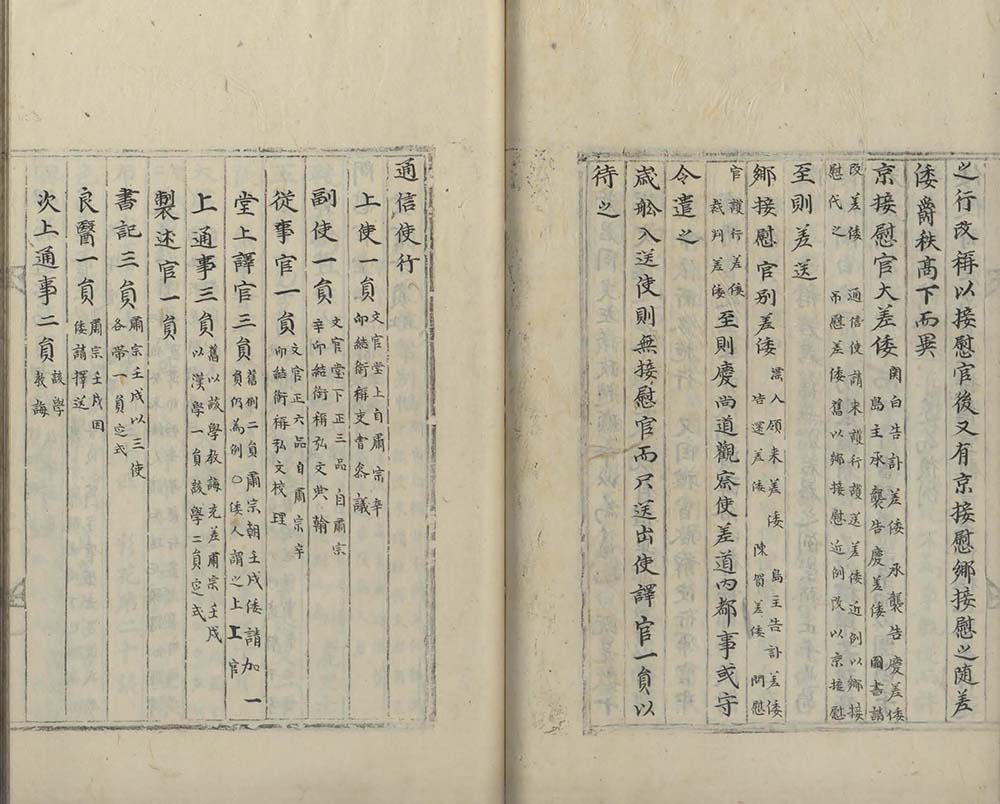 之行改稱以接慰官後又有京接慰鄉接慰之隨差
倭爵秩高下而異
京接慰官大差倭關白告訃差倭承襲告慶差倭
島主承襲告慶差倭圖書請
改差倭通信使請來護行護送差倭近例以鄉接
慰代之吊慰差倭舊以鄉接慰近例改以京接慰
至則差送
鄉接慰官別差倭漂人領來差倭島主告訃差倭
告還差倭陳賀差倭問慰
官護行差倭
裁判差倭至則慶尚道觀察使差道內都事或守
令遣之
歲舩入送使則無接慰官而只送出使譯官一員以
待之
通信使行
上使一員文官堂上自肅宗辛
卯結銜稱吏曹參議
副使一員文官堂下正三品自肅宗
辛卯結銜稱弘文典翰
從事官一員文官正六品自肅宗辛
卯結銜稱弘文校理
堂上譯官三員舊例二員肅宗朝壬戌倭請加一
員仍為例○倭人謂之上上官
上通事三員舊以該學教誨充差肅宗壬戌
以漢學一員該學二員定式
製述官一員
書記三員肅宗壬戌以三使
各帶一員定式
良醫一員肅宗壬戌因
倭請擇送
次上通事二員該學
教誨